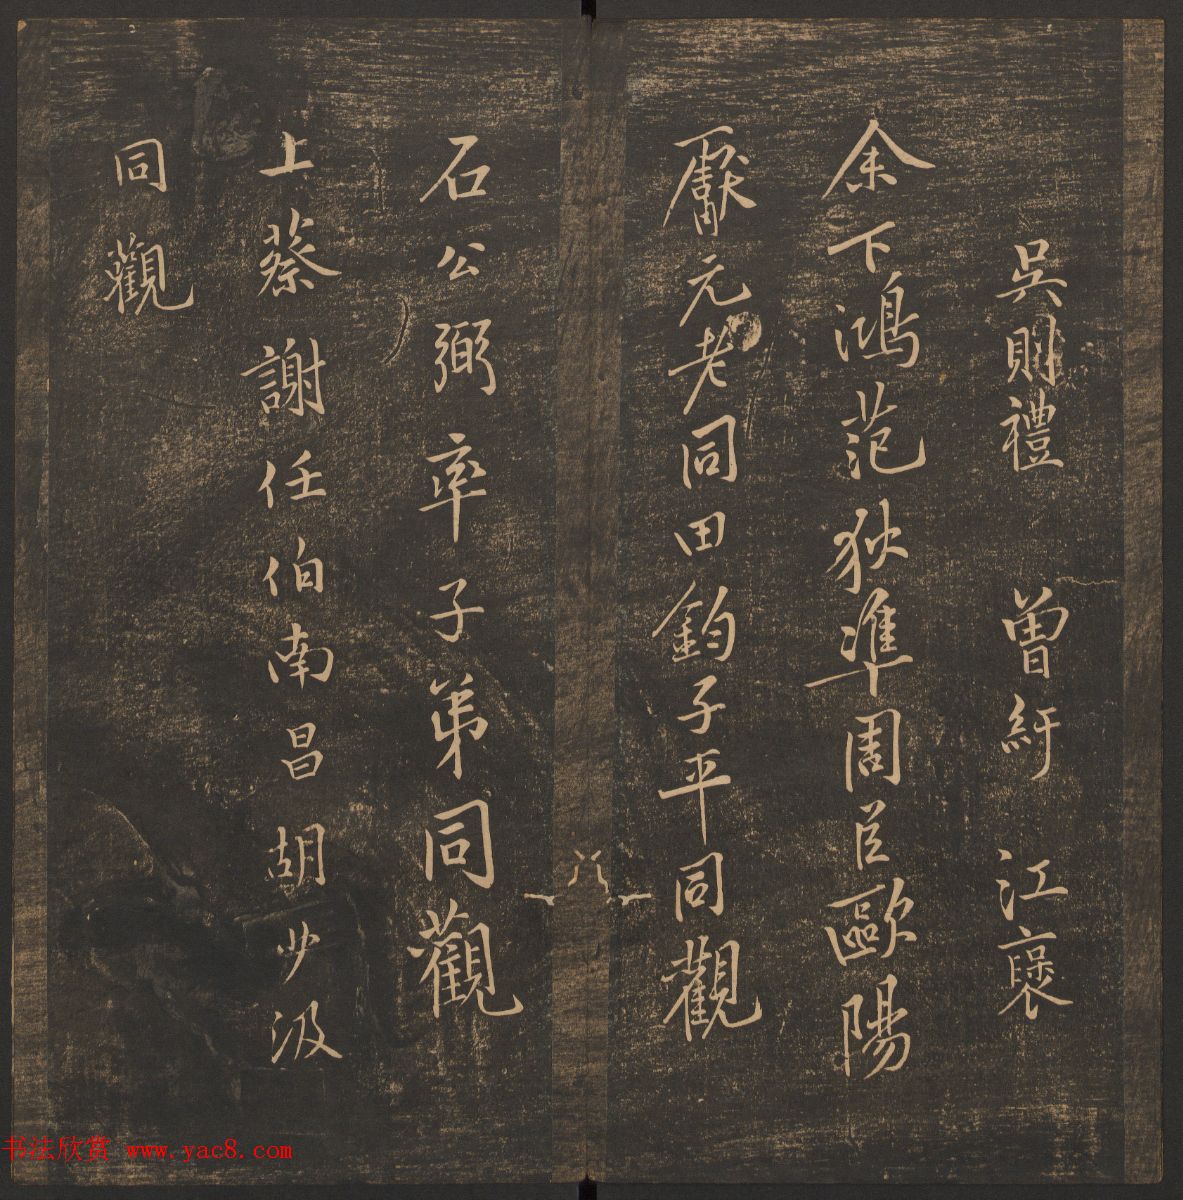 吳則禮 曾紆 江褒
余下鴻范狄準周臣歐陽
獻元老同田鈞子平同觀
石公弼率子弟同觀
上蔡謝任伯南昌胡少汲
同觀
书法欣赏 www.yac8.com